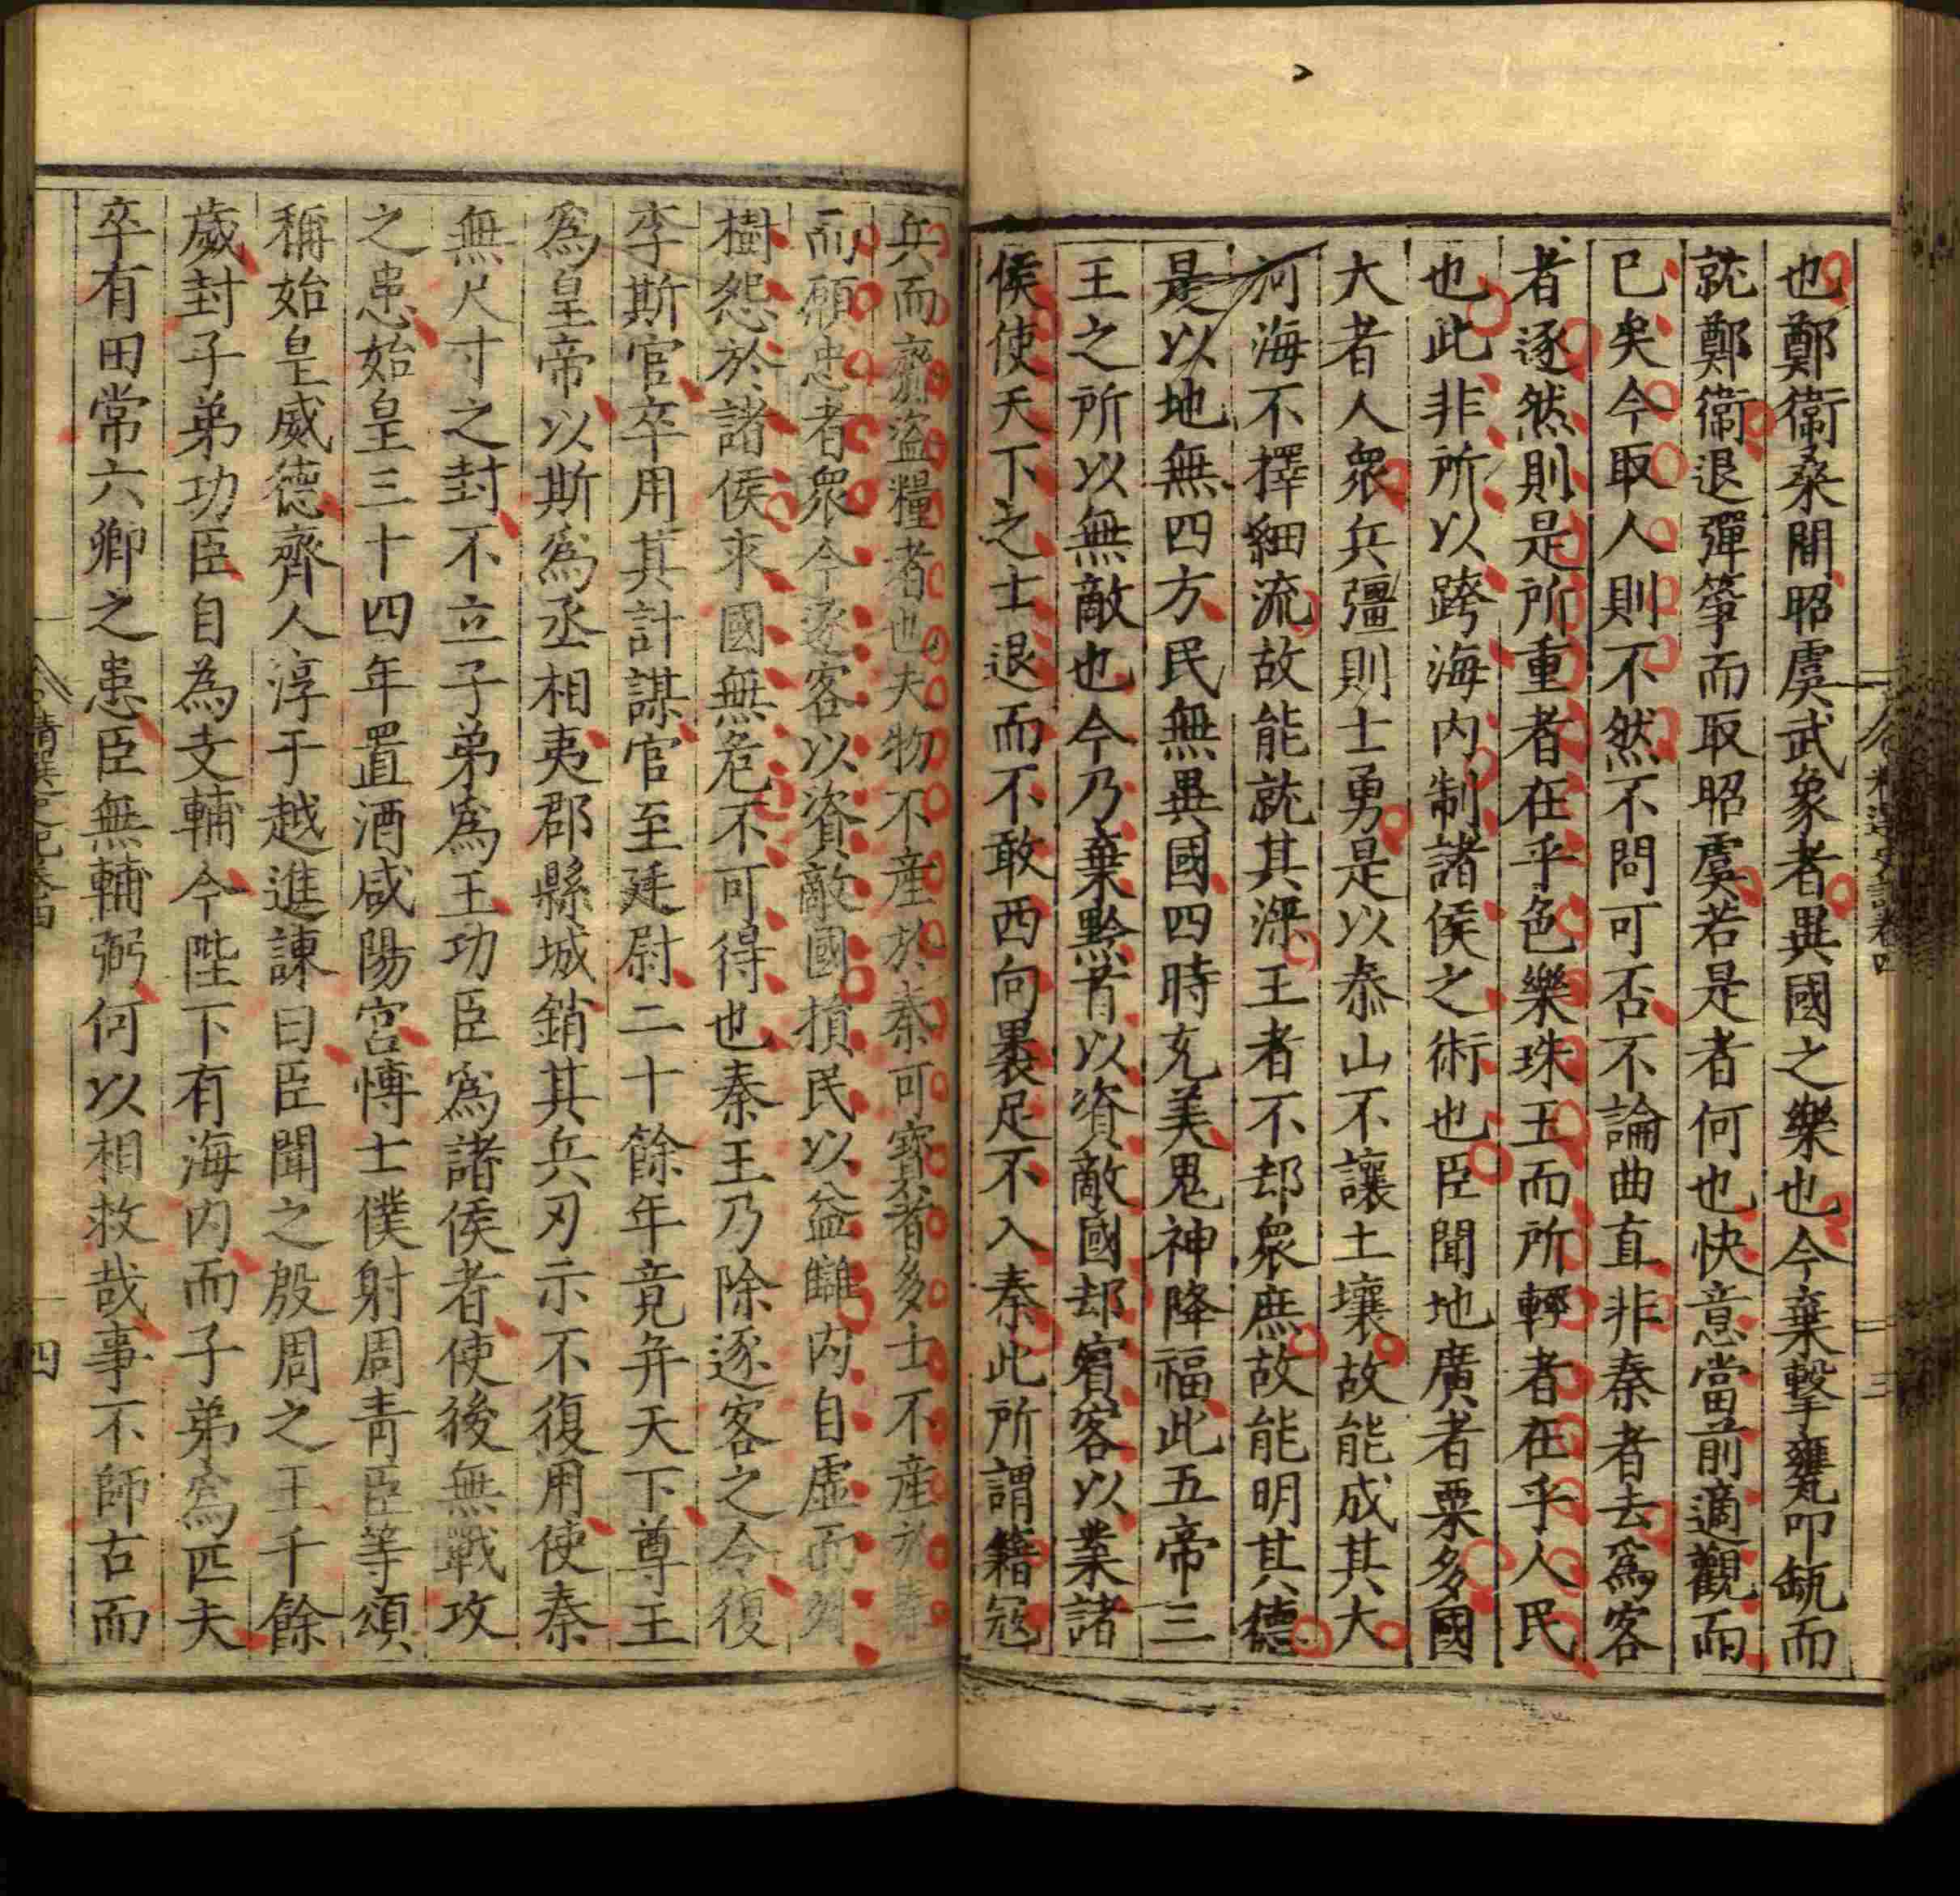 也鄭衞桑間昭虞武象者異國之樂也今棄擊甕叩缻而
就鄭衞退彈箏而取昭虞若是者何也快意當前適觀而
已矣今取人則不然不問可否不論曲直非秦者去爲客
者逐然則是所重者在乎色樂珠玉而所輕者在乎人民
也此非所以跨海内制諸侯之術也臣聞地廣者粟多國
大者人衆兵彊則士勇是以泰山不讓土壤故能成其大
河海不擇細流故能就其深王者不却衆庶故能明其德
是以地無四方民無異國四時充美鬼神降福此五帝三
王之所以無敵也今乃棄黔首以資敵國却賓客以業諸
侯使天下之士退而不敢西向裹足不入秦此所謂籍寇
兵而齎盜糧者也夫物不産於秦可寶者多士不産於秦
而願忠者衆今逐客以資敵國損民以益讎内自虛而外
樹怨於諸侯求國無危不可得也秦王乃除逐客之令復
李斯官卒用其計謀官至廷尉二十餘年竟并天下尊王
爲皇帝以斯爲丞相夷郡縣城銷其兵刃示不復用使秦
無尺寸之封不立子弟爲王功臣爲諸侯者使後無戰攻
之患始皇三十四年置酒咸陽宮博士僕射周青臣等頌
稱始皇威德齊人淳于越進諫曰臣聞之殷周之王千餘
歲封子弟功臣自為支輔今陛下有海内而子弟爲匹夫
卒有田常六卿之患臣無輔弼何以相救哉事不師古而
精選史記卷四
四